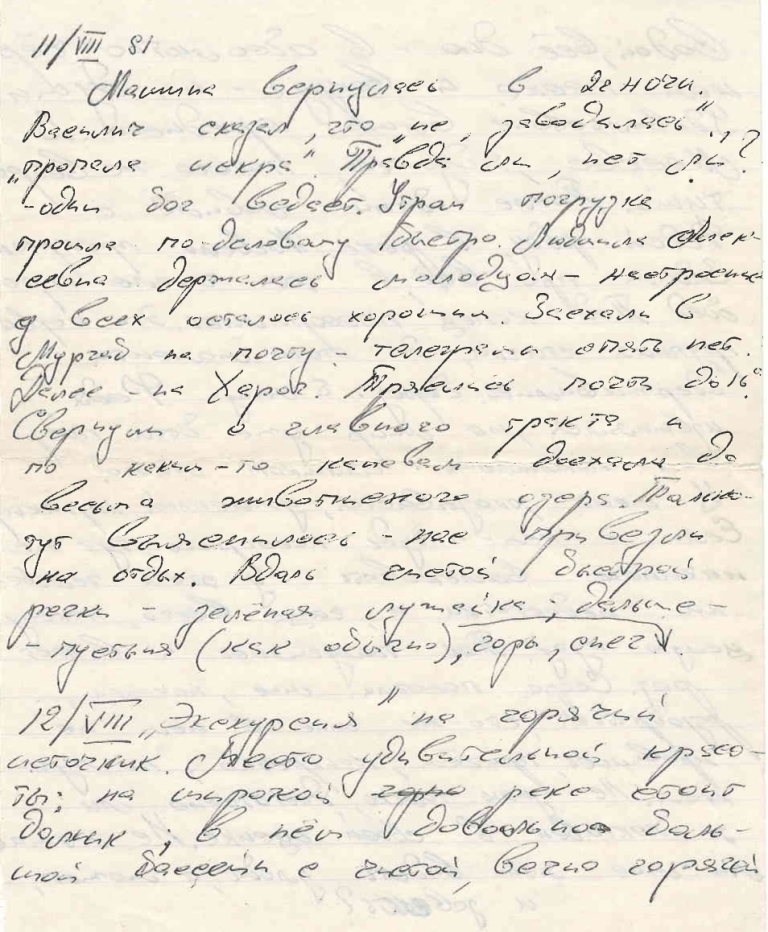 11/VIII 81
Машина вернулась в 2е ночи.
Василич сказал, что „не заводилась",
„пропала искра". Правда ли, нет ли?
- один бог ведает. Утром погрузка
прошла по-деловому быстро. Людмила Алек-
сеевна держалась молодцом - настроение
у всех осталось хорошим. Заехали в
Мургаб на почту - телеграмм опять нет.
Далее - на Хорог. Тряслись почти до 16°°.
Свернули с главного тракта и
по каким-то канавам доехали до
весьма живописного озера. Только
тут выяснилось - нас привезли
на отдых. Вдаль чистой быстрой
речки - зелёная лужайка; дальше -
- пустыня (как обычно), горы, снег.
12/VIII „Экскурсия" на горячий
источник. Место удивительной красо-
ты: на широкой горно реке стоит
домик; в нём довольно боль-
шой бассейн с чистой, вечно горячей